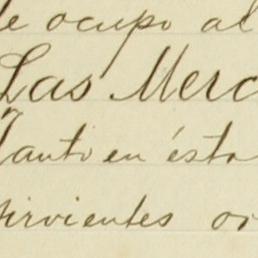 e ocupo al
Las Merc
tanto en ésta
sirvientes or